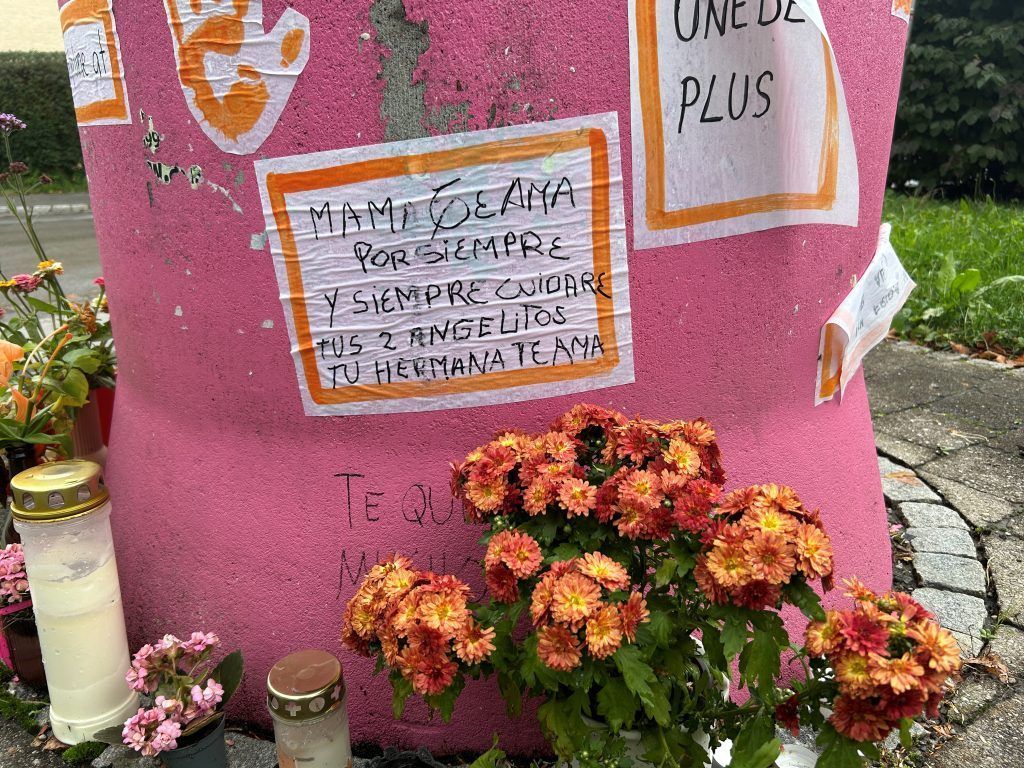 UNE DE
PLUS
MAMi TE AMA
POR SIEMPRE
Y SiEMPRE CUIDARE
TUS 2 ANGELITOS
TU HERMANA TE AMA
TE